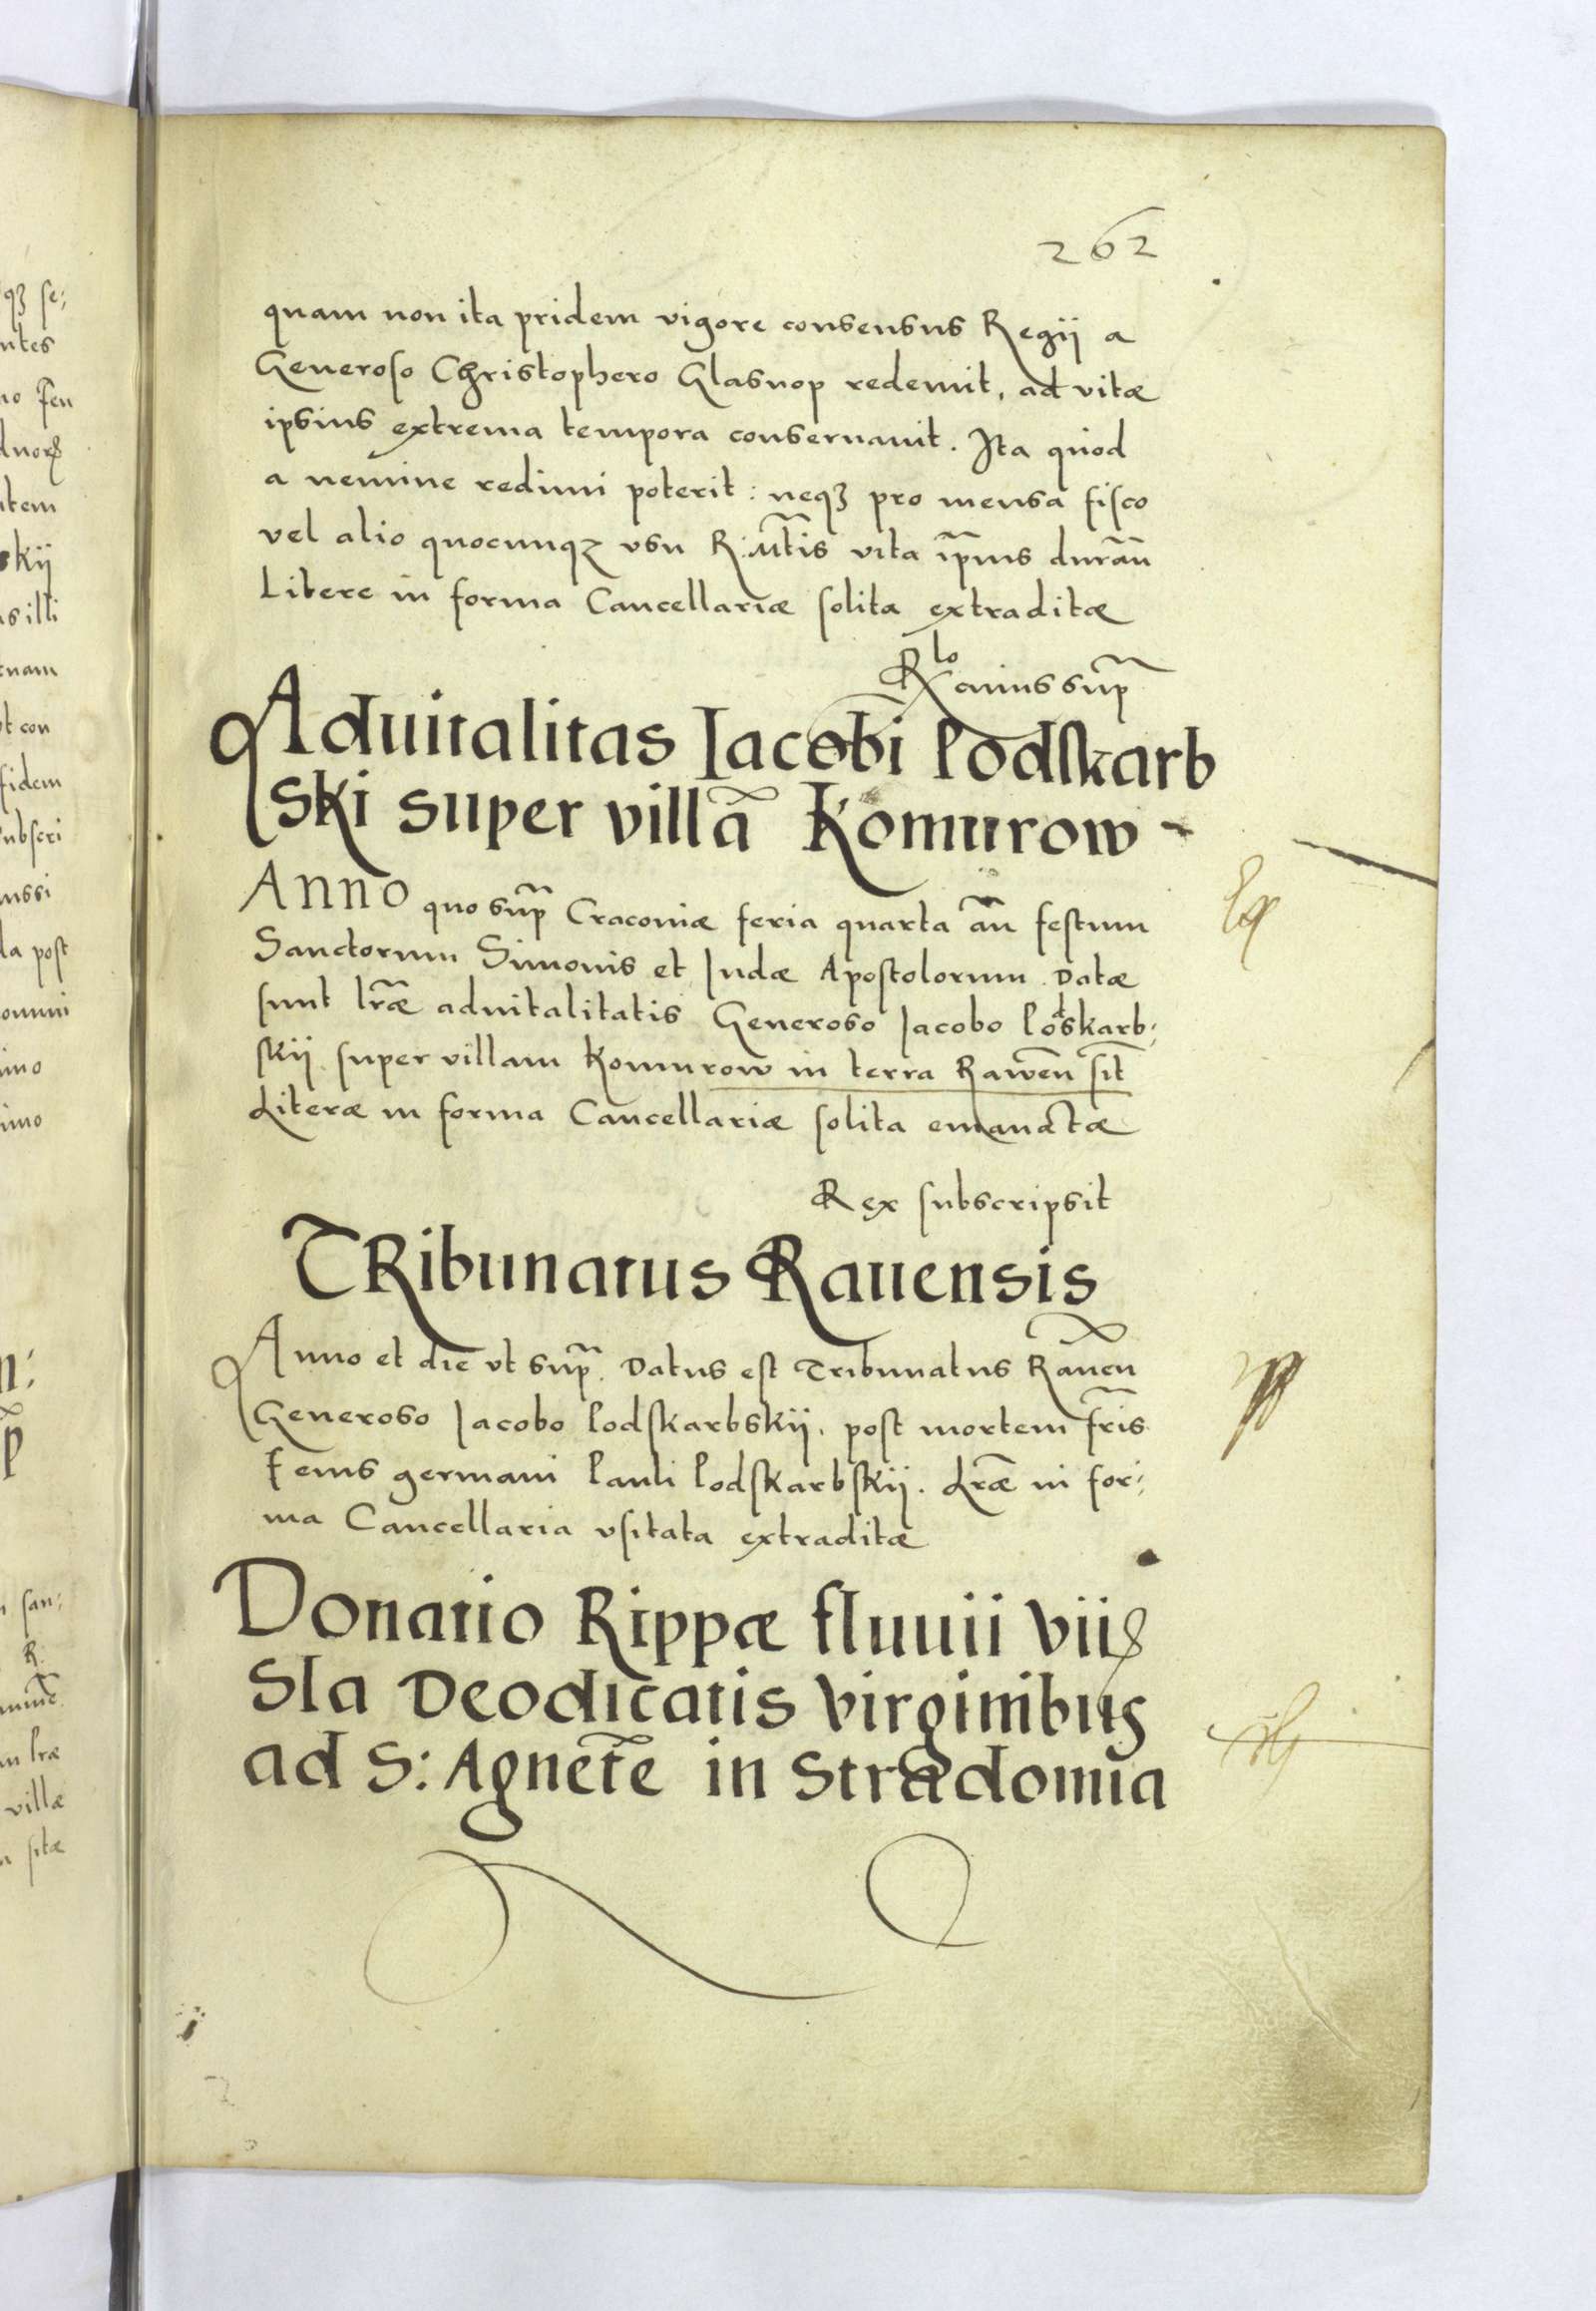 262
quam non ita pridem vigore consensus Regij a
Generoso Christophero Glasnop redemit, ad vitæ
ipsius extrema tempora conseruauit. Ita quod
a nemine redimi poterit: neqꝫ pro mensa fisco
vel alio quocunqꝫ vsu R: Mt̃is vita ip̃ius durañ
Libere in forma Cancellariæ solita extraditæ
Rlo cuius sup̃
Aduitalitas Iacobi Podskarb
ski super villã Komurow
Anno quo sup̃ Cracouiæ feria quarta añ festum
Sanctorum Simonis et Iudæ Apostolorum. Datæ
sunt lr̃æ aduitalitatis Generoso Iacobo Podskarb;
skij super villam Komurow in terra Raweñ sit̃
Literæ in forma Cancellariæ solita emanatæ
Rex subscripsit
Tribunatus Rauensis
Anno et die vt sup̃. Datus est Tribunatus Raueñ
Generoso Iacobo Podskarbskij. post mortem fr̃is
eius germani Pauli Podskarbskij. Lr̃æ in for;
ma Cancellaria vsitata extraditæ
Donatio Rippæ fluuii Viis
sla Deodicatis virginibus
ad S: Agnetẽ in Stradomia
qꝫ se;
ntes
tem
skij
s illi
nam
vt con
fidem
ubscri
ussi
la post
ommi
imo
imo
san;
R.
villæ
sitæ